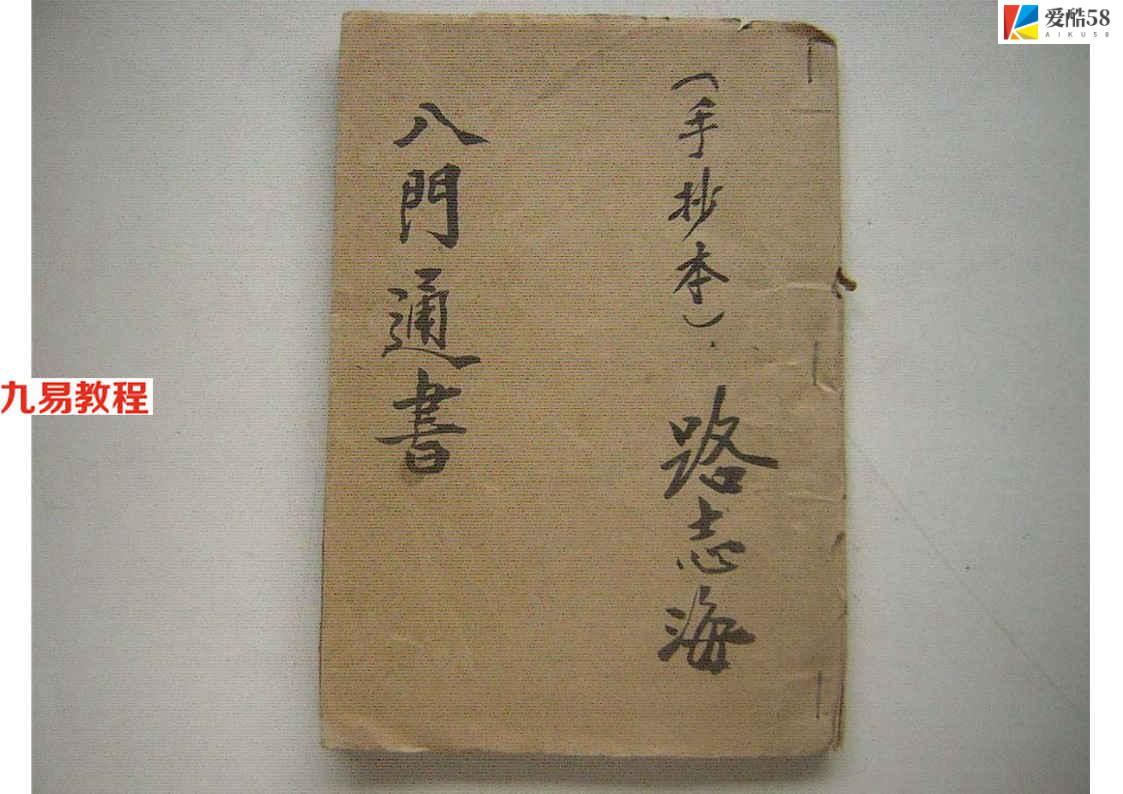 爱酷58
AIKU58
（手抄本）
路志海
八門通書
九易教程